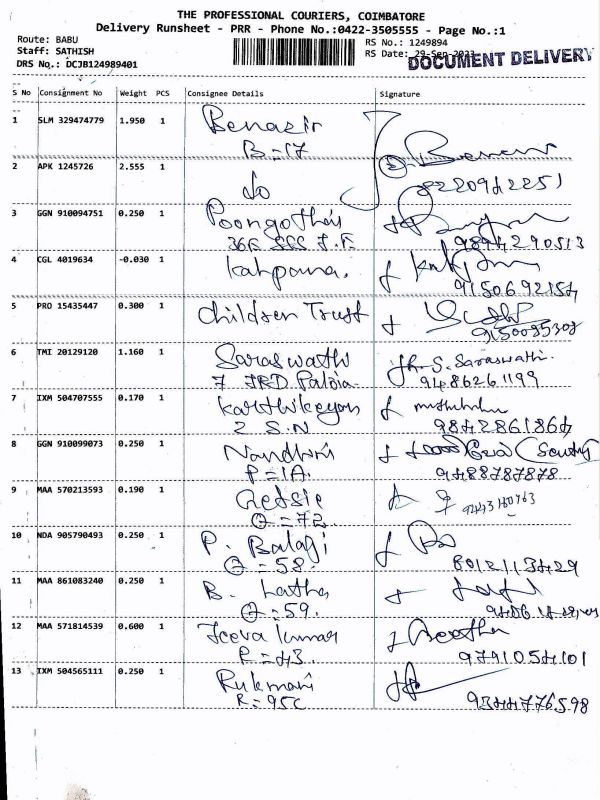 THE PROFESSIONAL COURIERS, COIMBATORE
Delivery Runsheet - PRR - Phone No.:0422-3505555 - Page No.:1
Route: BABU
RS No.: 1249894
Staff: SATHISH
RS Date: 29-Sep-2023
DOCUMENT DELIVERY
DRS No.: DCJB124989401
S No Consignment No Weight PCS Consignee Details Signature
1 SLM 329474779 1.950 1 Benazir
B=17
2 APK 1245726 2.555 1 do
8220942251
3 GGN 910094751 0.250 1 Poongothai
366 SSS J.F. 9894290513
4 CGL 4019634 -0.030 1 Kalpana.
9150692154
5 PRO 15435447 0.300 1 Children Trust
9150095308
6 TMI 20129120 1.160 1 Saraswathi S. Saraswathi.
7 JRD 9486261199
7 IXM 504707555 0.170 1 Karthikeyan
2 S.N 9842861864
8 GGN 910099073 0.250 1 Nandhini
P=1A. 9488787878
9 MAA 570213593 0.190 1 Getsie
Q=72
10 NDA 905790493 0.250 1 P. Balaji
Q=58. 8012113429
11 MAA 861083240 0.250 1 B. Latha
Q=59.
12 MAA 571814539 0.600 1 Jeeva kumar
R=43. 9791054101
13 IXM 504565111 0.250 1 Rukmani
R=95C 9344776598